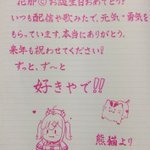 お誕生日おめでとう!
いつも配信や歌みたで、元気・勇気を
もらっています。本当にありがとう。
来年も祝わせてください!
ずっと、ず〜と
好きやで!!
熊猫より